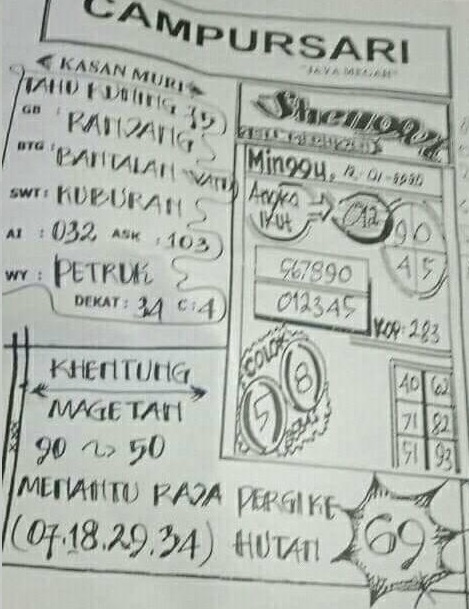 CAMPURSARI
"JAYA MEGAH"
KASAN MURI
TAHU KUNING 35
GB : RANJANG
BTG : BANTALAN WATU
SWT : KUBURAN
AI : 032 ASK : 103
WY : PETRUK
DEKAT : 34 C : 4
Minggu, 12-01-2020
Angka
IKUT
012
90
45
567890
012345
KOP-283
COLOK
5 8
40 62
71 82
51 93
KHENTUNG
MAGETAN
90 ~> 50
MENANTU RAJA PERGI KE
(07.18.29.34) HUTAN
69